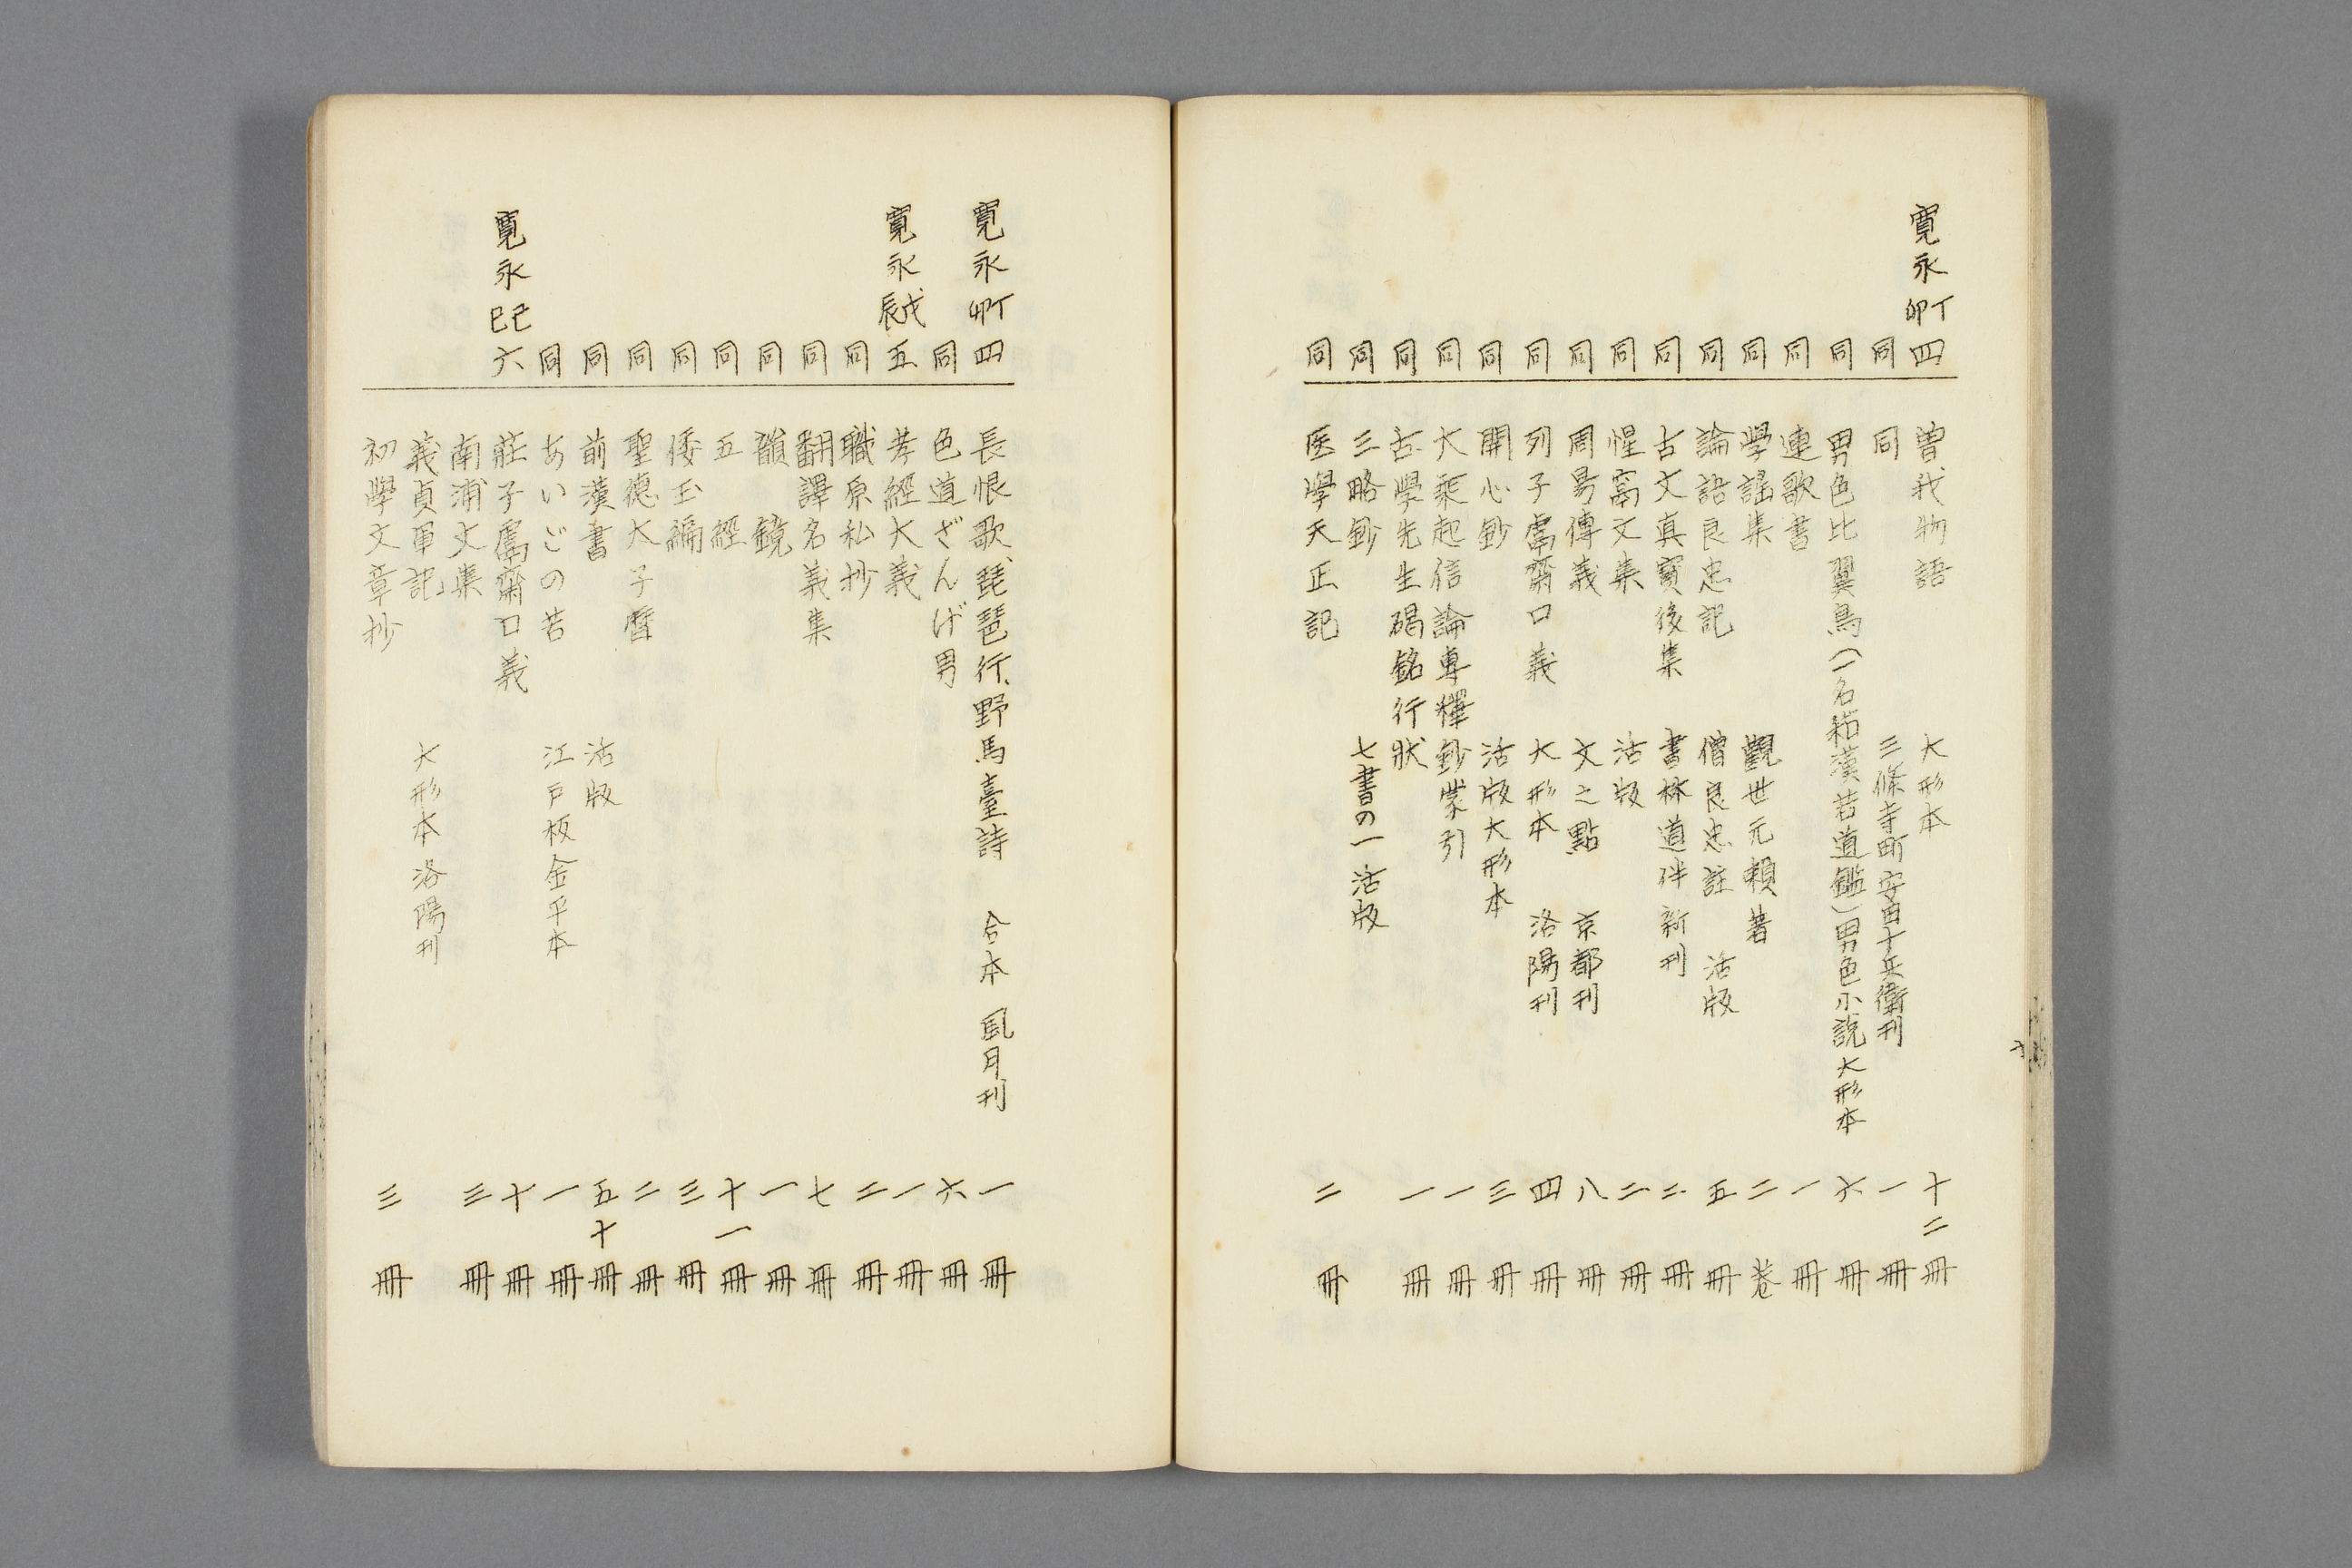 寛永丁卯四 曽我物語 大形本 十二冊
同 同 三條寺町安田十兵衛刊 一冊
同 男色比翼鳥（一名 漢若道鑑）男色小説大形本 六冊
同 連歌書 一冊
同 學謡集 觀世元頼著 二卷
同 論語良忠記 僧良忠註 活版 五冊
同 古文真寳後集 書林道伴新刊 二冊
同 惺窩文集 活版 二冊
同 周易傳義 文之點 京都刊 八冊
同 列子鬳齋口義 大形本 洛陽刊 四冊
同 開心鈔 活版大形本 三冊
同 大乘起信論專釋鈔蒙引 一冊
同 古學先生碣銘行状 一冊
同 三略鈔 七書の一 活版
同 医學天正記 二冊
寛永丁卯四 長恨歌、琵琶行、野馬臺詩 合本 風月刊 一冊
同 色道ざんげ男 六冊
寛永戊辰五 孝經大義 一冊
同 職原私抄 二冊
同 翻譯名義集 七冊
同 韻鏡 一冊
同 五經 十一冊
同 倭玉編 三冊
同 聖德太子暦 二冊
同 前漢書 活版 五十冊
同 あいごの若 江戸板金平本 一冊
寛永己巳六 莊子鬳齋口義 十冊
南浦文集 三冊
義貞軍記 大形本洛陽刊
初學文章抄 三冊